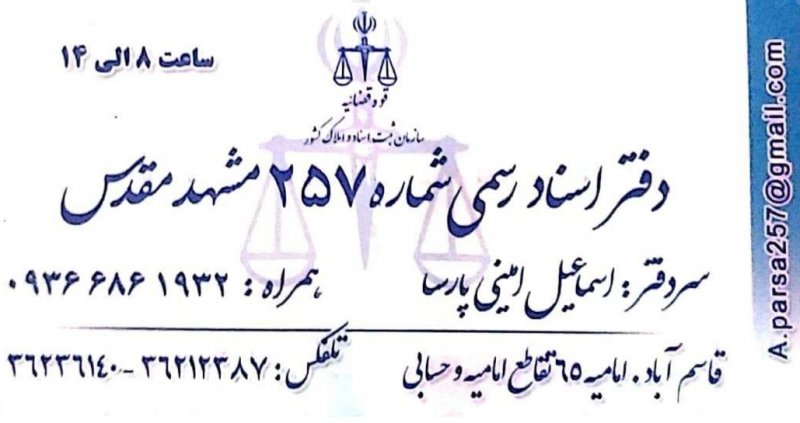 ساعت ۸ الی ۱۴
قوه قضائیه
سازمان ثبت اسناد و املاک کشور
دفتر اسناد رسمی شماره ۲۵۷ مشهد مقدس
سردفتر : اسماعیل امینی پارسا همراه : ۰۹۳۶ ۶۸۶ ۱۹۳۲
قاسم آباد . امامیه ٦٥ تقاطع امامیه و حسابی تلفکس : ۳۶۲۱۲۳۸۷ - ۳۶۲۳۶۱۴۰
A.parsa257@gmail.com